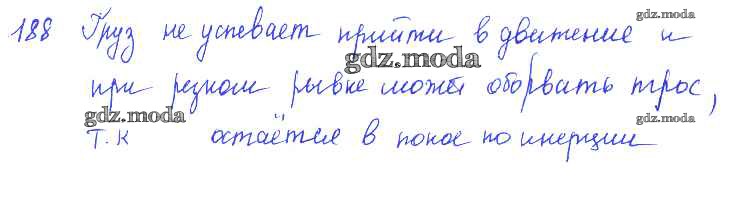 188 Груз не успевает прийти в движение и
при резком рывке может оборвать трос,
т.к остаётся в покое по инерции
gdz.moda
gdz.moda
gdz.moda
gdz.moda
gdz.moda